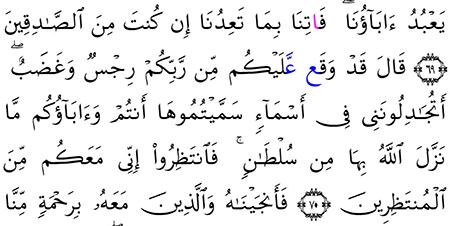 يَعْبُدُ ءَابَآؤُنَا ۖ فَاتِنَا بِمَا تَعِدُنَا إِن كُنتَ مِنَ ٱلصَّـٰدِقِينَ
۝٦٩ قَالَ قَدْ وَقَع عَّلَيْكُم مِّن رَّبِّكُمْ رِجْسٌ وَغَضَبٌ ۖ
أَتُجَـٰدِلُونَنِى فِىٓ أَسْمَآءٍ سَمَّيْتُمُوهَا أَنتُمْ وَءَابَآؤُكُم مَّا
نَزَّلَ ٱللَّهُ بِهَا مِن سُلْطَـٰنٍ ۚ فَٱنتَظِرُوٓا۟ إِنِّى مَعَكُم مِّنَ
ٱلْمُنتَظِرِينَ ۝٧٠ فَأَنجَيْنَـٰهُ وَٱلَّذِينَ مَعَهُۥ بِرَحْمَةٍ مِّنَّا